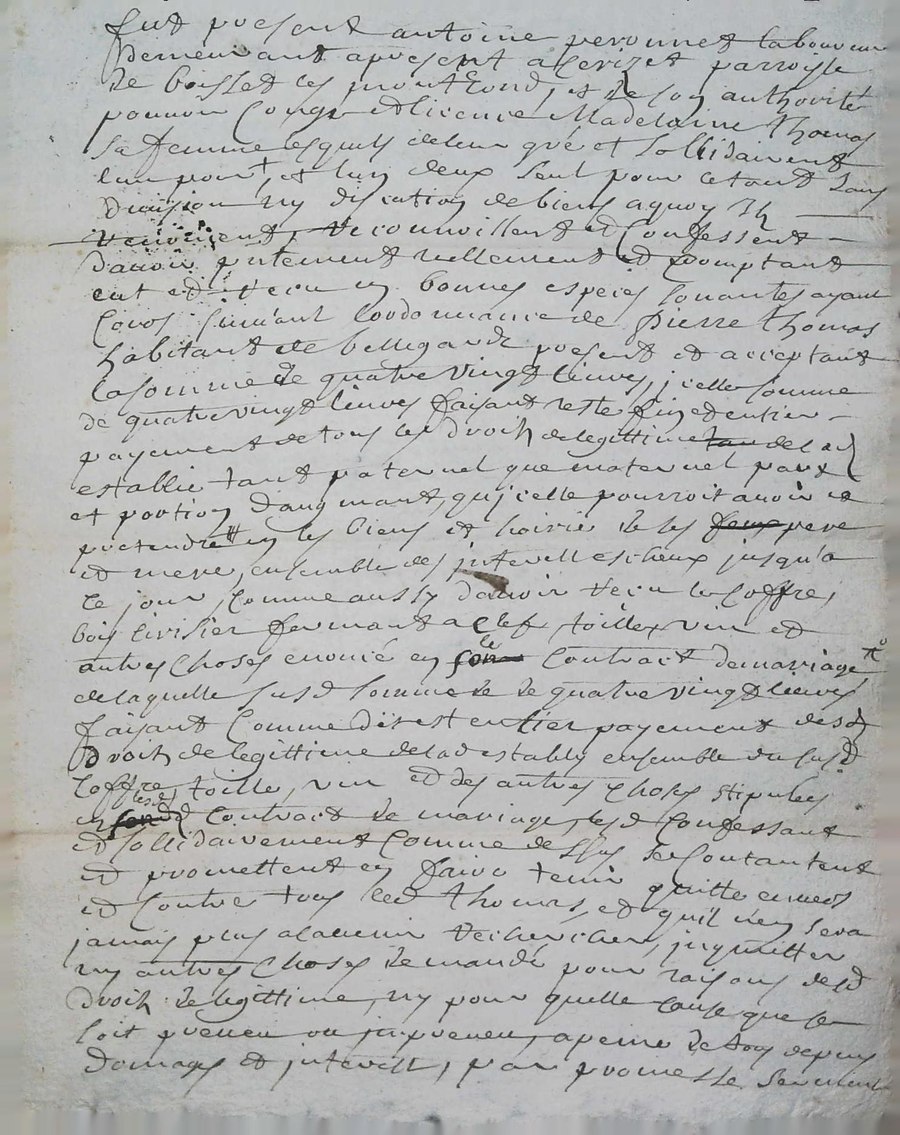 fut present antoine peronnet laboureur
demeurant apresent a cerizet parroisse
de boisset les montrond, et de son authorité
pouvoir conge et licence Madelaine Thomas
sa femme lesquels de leur gré et sollidairement
lun pour et lun deux seul pour le tout sans
division ny discution de biens a quoy ils
renoncent, reconnoissent et confessent
davoir prntement reellement et comptant
eut et receu en bonnes especes sonantes ayant
cours suivant lordonnance de pierre thomas
habitant de bellegarde present et acceptant
la somme de quatre vingt livres, jcelle somme
de quatre vingt livres faisant reste fin et entier
payement de tous les droits de legittime de lad
establie tant paternel que maternel part
et portion daugmant, qujcelle pourroit avoir et
pretendre en les biens et hoirie de ses pere
et mere, ensemble des jnterests jceux jusqu'a
ce jour, comme aussy davoir receu le coffre,
bois cerisier fermant a clef, toille, vin et
autres choses enoncé en le contract de mariage
de laquelle susd somme de quatre vingt livres
faisant comme dit est entier payement desd
droits de legittime de lad establie ensemble du susd
coffre, toille, vin et des autres choses stipulées
en contract de mariage, lesd confessant
et sollidairement comme dessus se contantent
et promettent en faire tenir quitte envers
et contre tous led thomas, et quil n'en sera
jamais plus a ladvenir rechercher, jnquietter
ny autres choses demandé pour raisons desd
droits de legittime, ny pour quelle cause que se
soit preveu ou jnpreveu, a peine de tous depens
domages et jnterests, par promesse serment